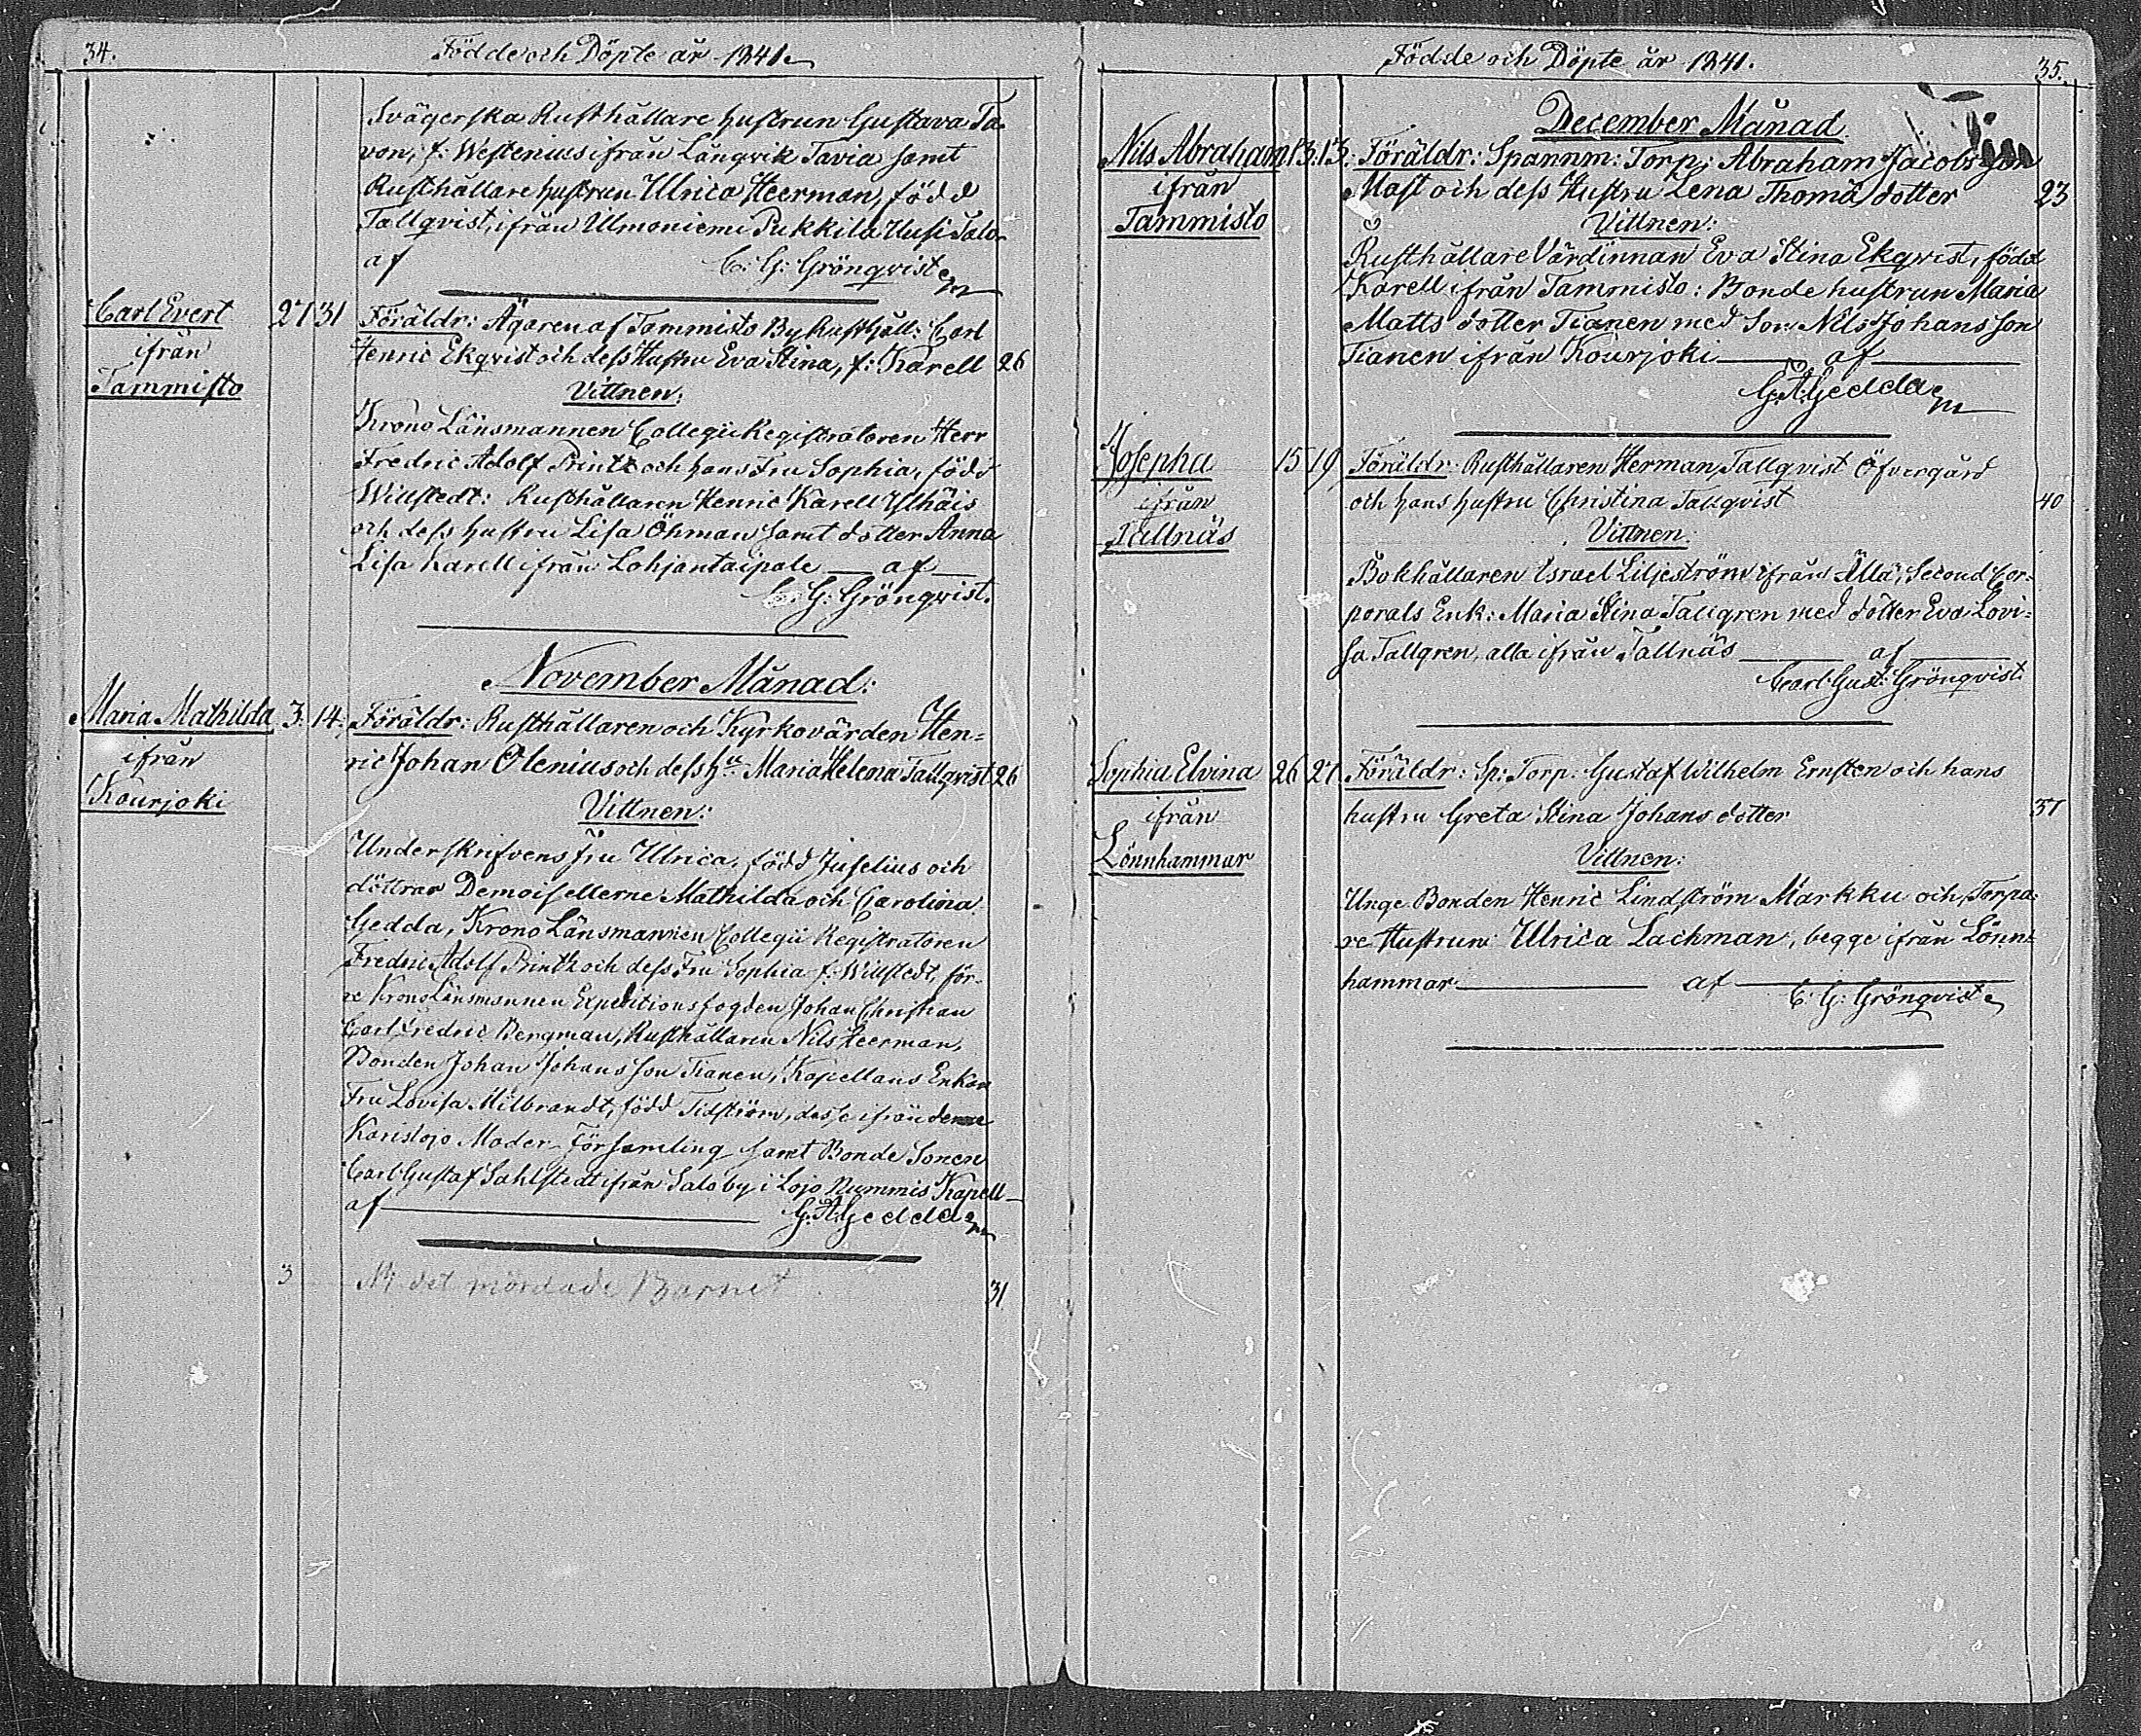 34.
Födde och Döpte år 1841.
Svägerska Rusthållare hustrun Gustava Ta-
von, f: Westenius ifrån Långvik Tavia samt
Rusthållare hustrun Ulrica Heerman, född
Tallqvist, ifrån Ulmoniemi Pukkila Uusi Talo
af C: G: Grönqvist
Carl Evert 27 31 Föräldr: Ägaren af Tammisto By Rusthåll: Carl
ifrån Henric Ekqvist och dess Hustru Eva Stina, f: Karell 26
Tammisto Vittnen:
Krono Länsmannen Collegii Registratoren Herr
Fredric Adolf Printz och hans Fru Sophia, född
Willstedt: Rusthållaren Henric Karell Ylhäis
och dess hustru Lisa Öhman samt dotter Anna
Lisa Karell ifrån Lohjantaipale af
C: G: Grönqvist.
November Månad:
Maria Mathilda 3. 14. Föräldr: Rusthållaren och Kyrkovärden Hen=
ifrån ric Johan Olenius och dess Hu Maria Helena Tallqvist 26
Kourjoki Vittnen:
Underskrifvens Fru Ulrica, född Juselius och
döttrar Demoisellerne Mathilda och Carolina
Gedda, Krono Länsmannen Collegii Registratoren
Fredric Adolf Printz och dess Fru Sophia f: Willstedt, för-
re Krono Länsmannen Expeditionsfogden Johan Christian
Carl Fredric Bergman, Rusthållaren Nils Heerman,
Bonden Johan Johansson Tianen, Kapellans Enkan
Fru Lovisa Milbrandt, född Tidström, desse ifrån denna
Karislojo Moder-Församling samt Bonde Sonen
Carl Gustaf Sahlstedt ifrån Salo by i Lojo Nummis Kapell
af G: A: Gedda
3 det mördade Barnet 31
Födde och Döpte år 1841.
35.
December Månad
Nils Abraham 13. 13. Föräldr: Spannm: Torp: Abraham Jacobsson
ifrån Mast och dess Hustru Lena Thomä dotter 23
Tammisto Vittnen:
Rusthållare Värdinnan Eva Stina Ekqvist, född
Karell ifrån Tammisto: Bonde hustrun Maria
Matts dotter Tianen med Son Nils Johansson
Tianen ifrån Kourjoki af
G: A: Gedda
Josepha 15 19 Föräldr: Rusthållaren Herman Tallqvist Öfvergård
ifrån och hans hustru Christina Tallqvist 40
Tallnäs Vittnen:
Bokhållaren Israel Liljeström ifrån Ållä; Second Cor=
porals Enk: Maria Stina Tallgren med dotter Eva Lovi=
sa Tallgren, alla ifrån Tallnäs af
Carl Gust: Grönqvist.
Sophia Elvina 26 27. Föräldr: Sp: Torp: Gustaf Wilhelm Ernsten och hans
ifrån hustru Greta Stina Johans dotter 37
Lönnhammar Vittnen:
Unge Bonden Henric Lindström Markku och Torpa-
re Hustrun Ulrica Lachman, begge ifrån Lönn=
hammar af
C: G: Grönqvist